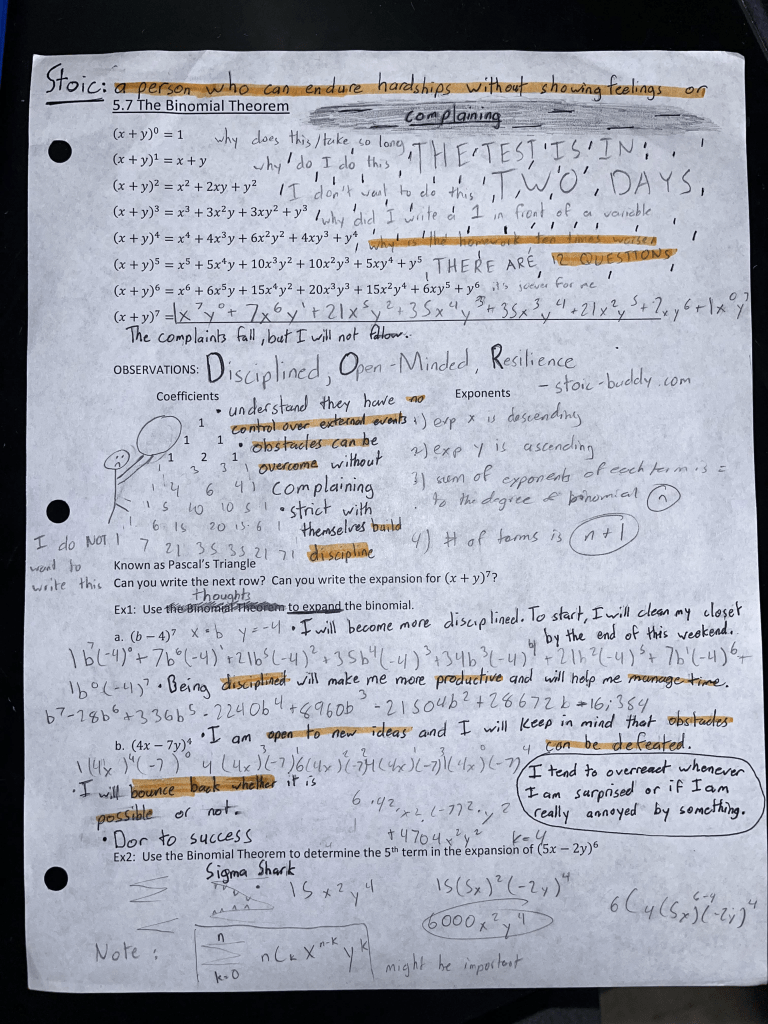 Stoic: a person who can endure hardships without showing feelings or
complaining
5.7 The Binomial Theorem
(x + y)⁰ = 1 why does this take so long
(x + y)¹ = x + y why do I do this THE TEST IS IN:
(x + y)² = x² + 2xy + y² I don't want to do this TWO DAYS,
(x + y)³ = x³ + 3x²y + 3xy² + y³ why did I write a 1 in front of a variable
(x + y)⁴ = x⁴ + 4x³y + 6x²y² + 4xy³ + y⁴ why is the homework ten times
(x + y)⁵ = x⁵ + 5x⁴y + 10x³y² + 10x²y³ + 5xy⁴ + y⁵ THERE ARE 12 QUESTIONS
(x + y)⁶ = x⁶ + 6x⁵y + 15x⁴y² + 20x³y³ + 15x²y⁴ + 6xy⁵ + y⁶ it's for me
(x + y)⁷ = 1x⁷y⁰ + 7x⁶y¹ + 21x⁵y² + 35x⁴y³ + 35x³y⁴ + 21x²y⁵ + 7xy⁶ + 1x⁰y⁷
The complaints fall, but I will not
OBSERVATIONS: Disciplined, Open-Minded, Resilience
- stoic-buddy.com
Coefficients
Exponents
• understand they have no
control over external events
• obstacles can be
overcome without
complaining
• strict with
themselves build
discipline
1
1 1
1 2 1
1 3 3 1
1 4 6 4 1
1 5 10 10 5 1
1 6 15 20 15 6 1
1 7 21 35 35 21 7 1
1) exp x is descending
2) exp y is ascending
3) sum of exponents of each term is =
to the degree of binomial (n)
4) # of terms is n+1
I do NOT
want to
write this
Known as Pascal's Triangle
Can you write the next row? Can you write the expansion for (x + y)⁷?
thoughts
Ex1: Use the Binomial Theorem to expand the binomial.
a. (b − 4)⁷ x=b y=-4 • I will become more disciplined. To start, I will clean my closet
by the end of this weekend.
1b⁷(-4)⁰ + 7b⁶(-4)¹ + 21b⁵(-4)² + 35b⁴(-4)³ + 34b³(-4)⁴ + 21b²(-4)⁵ + 7b¹(-4)⁶ +
1b⁰(-4)⁷ • Being disciplined will make me more productive and will help me manage time.
b⁷-28b⁶+336b⁵-2240b⁴+8960b³-21504b²+28672b-16,384
b. (4x − 7y)⁴ • I am open to new ideas and I will keep in mind that obstacles
can be defeated.
1(4x)⁴(-7)⁰ 4(4x)³(-7)¹6(4x)²(-7)²4(4x)¹(-7)³1(4x)⁰(-7)⁴
• I will bounce back whether it is
possible or not.
• Dor to success
6·42x²(-7)²·y²
+4704x²y² k=4
I tend to overreact whenever
I am surprised or if I am
really annoyed by something.
Ex2: Use the Binomial Theorem to determine the 5th term in the expansion of (5x − 2y)⁶
Sigma Shark
15x²y⁴
15(5x)²(-2y)⁴
6000x²y⁴
6C4(5x)⁶⁻⁴(-2y)⁴
Note:
n
Σ nCk xⁿ⁻ᵏ yᵏ
k=0
might be important